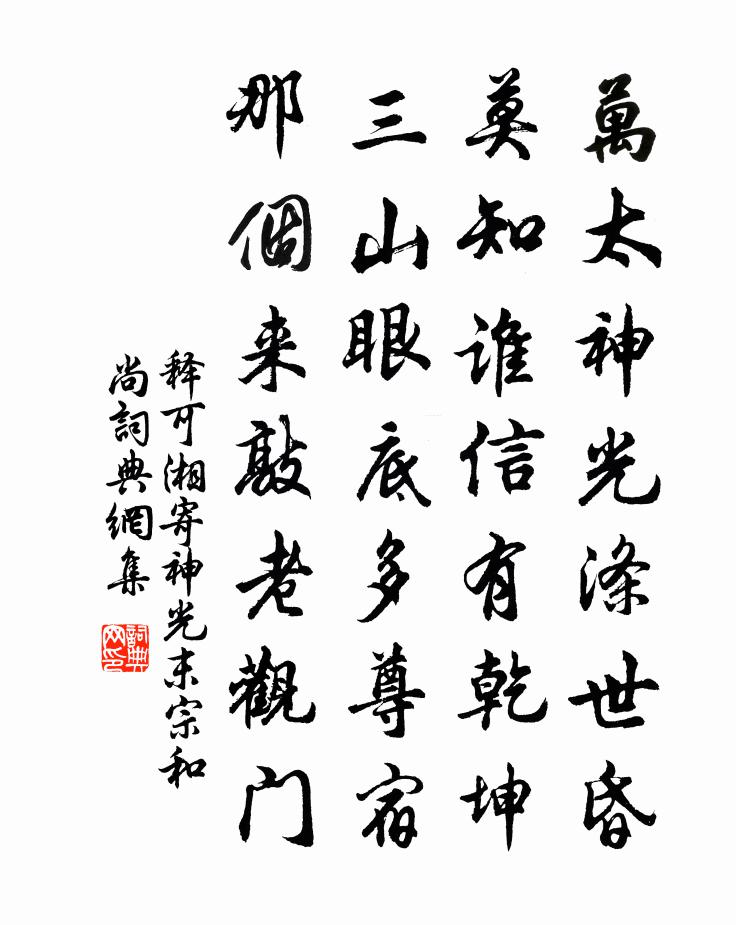 萬太神光涤世昏
莫知誰信有乾坤
三山眼底多尊宿
那個来敲老觀门
释可湘寄神光末宗和
尚詞典網集
詞典网印